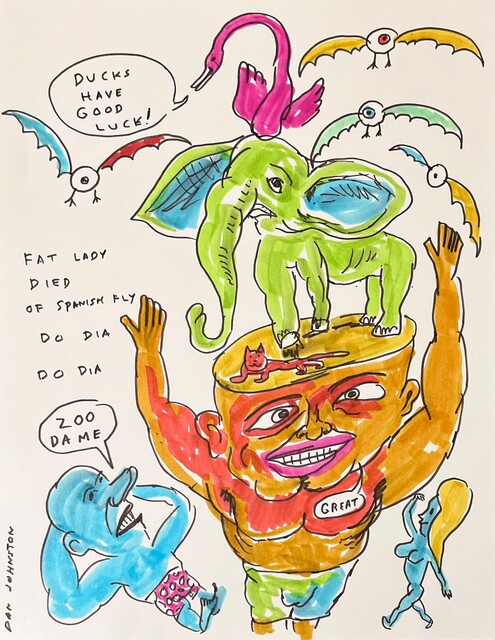 DUCKS
HAVE
GOOD
LUCK!
FAT LADY
DIED
OF SPANISH FLY
DO DIA
DO DIA
ZOO
DAME
GREAT
DAN JOHNSTON